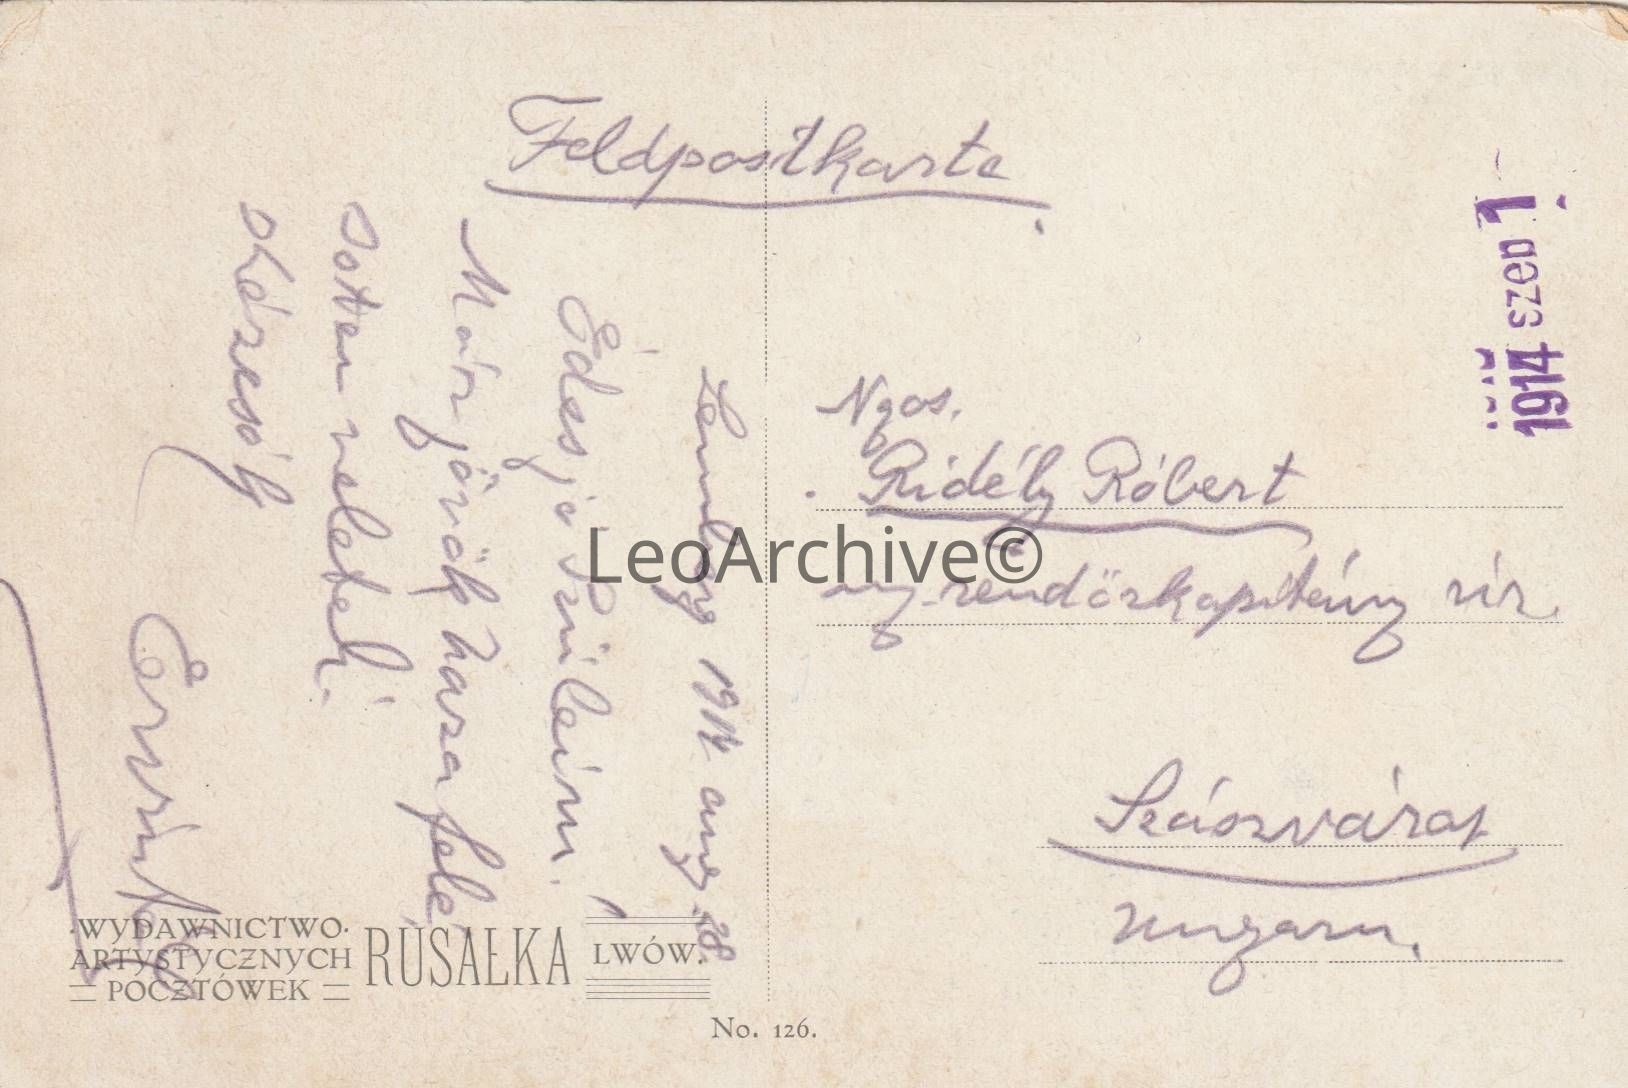 Feldpostkarte
Lemberg 1914 aug. 28.
Édes jó Szüleim!
Már jövök haza felé,
Isten veletek!
skézcsók
Ervin
Ngos.
Ridély Róbert
rendőrkapitány úr.
Szászváros
Ungarn.
1914 szep 1
·WYDAWNICTWO·
ARTYSTYCZNYCH
POCZTÓWEK
RUSAŁKA
LWÓW.
No. 126.
LeoArchive©